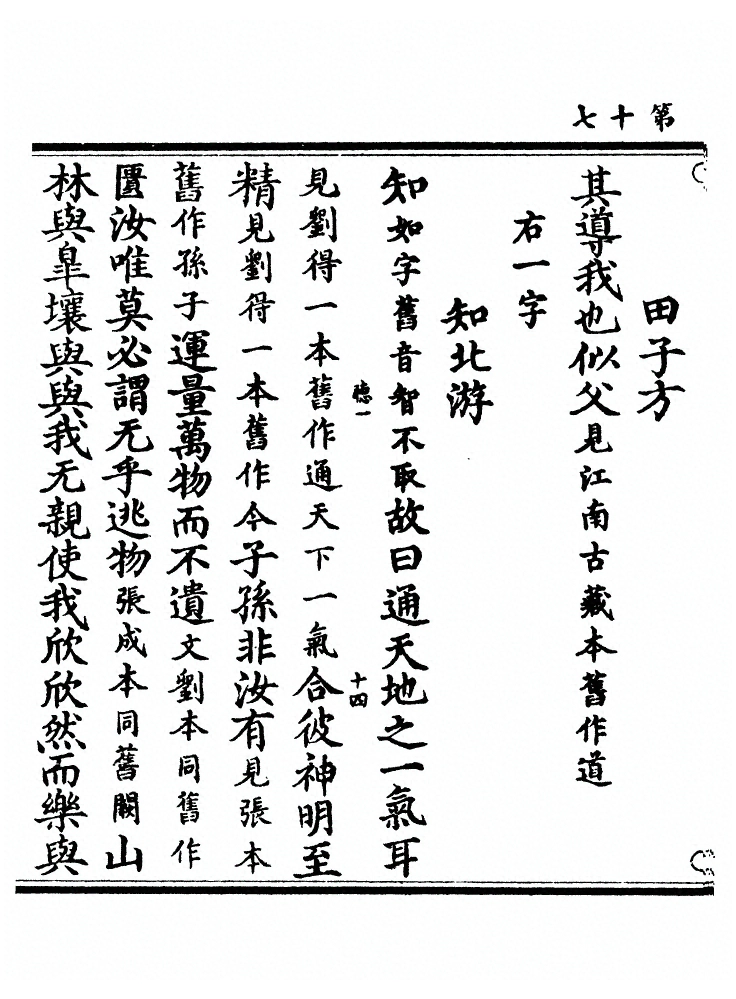 第十七
田子方
其導我也似父見江南古藏本舊作道
右一字
知北游
知如字舊音智不取故曰通天地之一氣耳
德一
十四
見劉得一本舊作通天下一氣合彼神明至
精見劉得一本舊作今子孫非汝有見張本
舊作孫子運量萬物而不遺文劉本同舊作
匱汝唯莫必謂无乎逃物張成本同舊闕山
林與臯壤與與我无親使我欣欣然而樂與